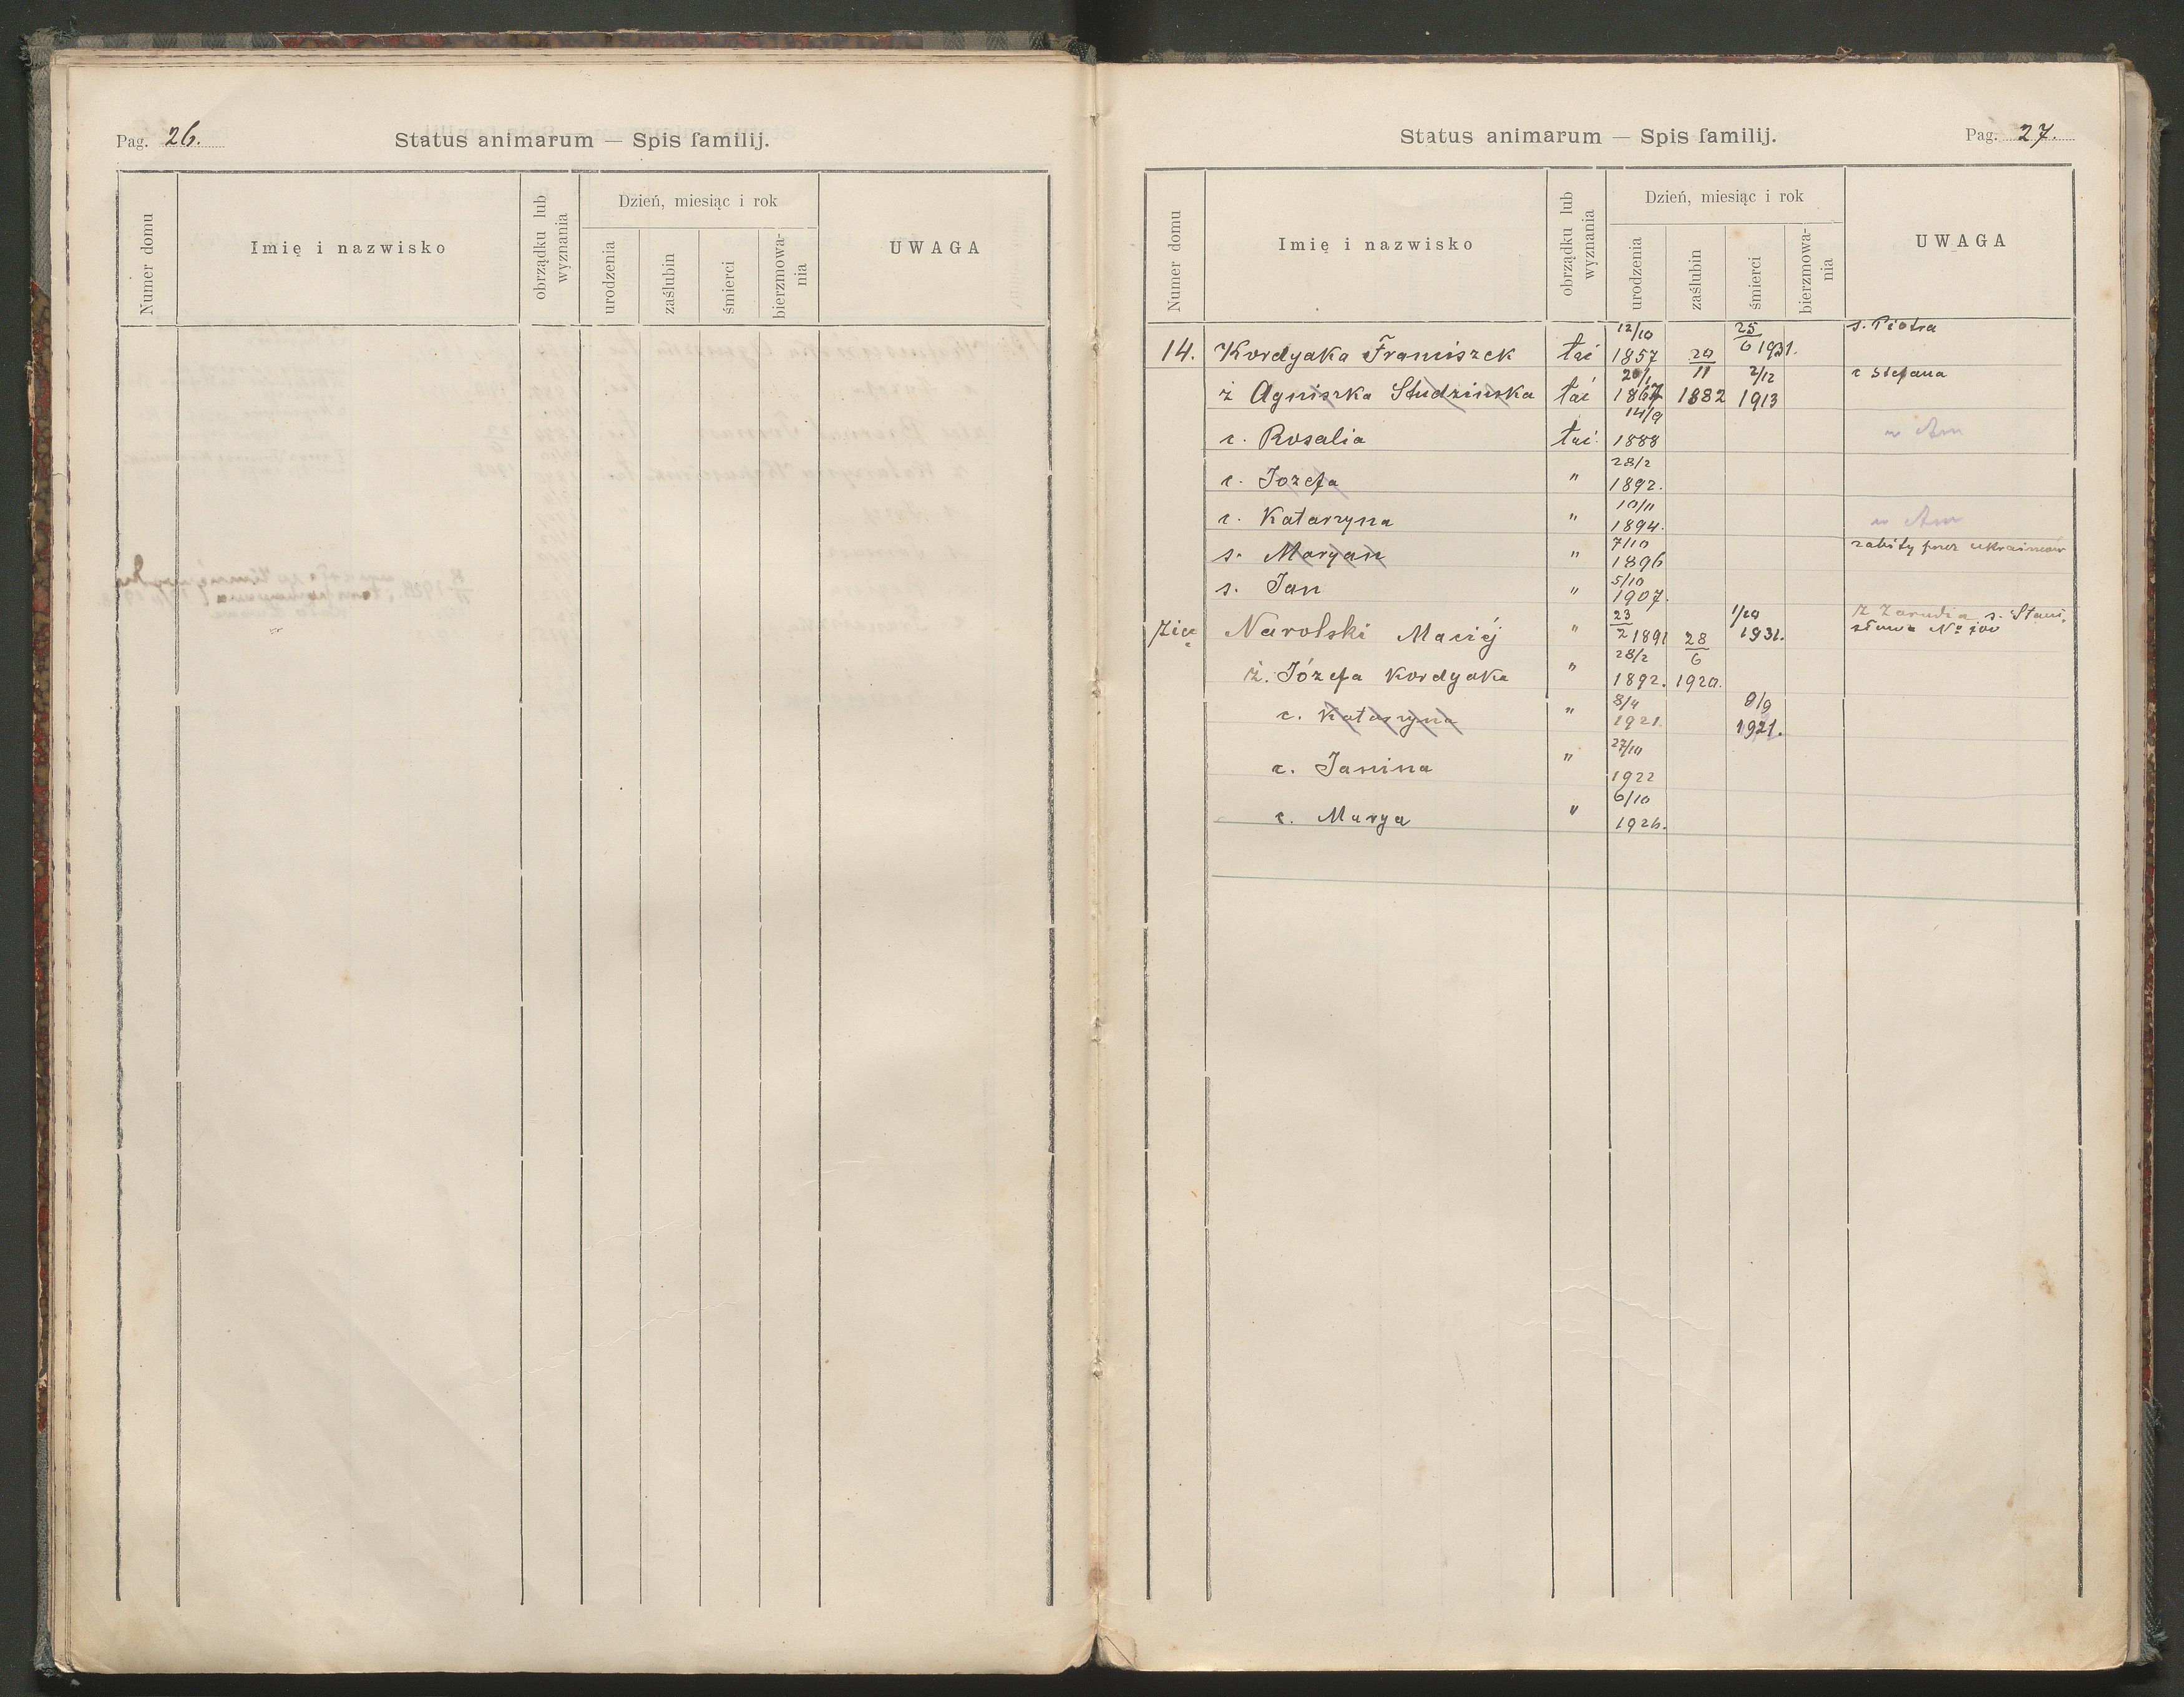 Pag. 26.
Status animarum — Spis familij.
Numer domu
Imię i nazwisko
obrządku lub wyznania
Dzień, miesiąc i rok
urodzenia
zaślubin
śmierci
bierzmowa-nia
UWAGA
Status animarum — Spis familij.
Pag. 27.
Numer domu
Imię i nazwisko
obrządku lub wyznania
Dzień, miesiąc i rok
urodzenia
zaślubin
śmierci
bierzmowa-nia
UWAGA
14. Kordyaka Franciszek łać 12/10 1857 25/6 1931. s. Piotra
ż Agniszka Studzinska łać 20/1 1867 20/11 1882 2/12 1913 c Stefana
c. Rosalia łać. 14/9 1888 w Am
c. Jozefa " 28/2 1892.
c. Katarzyna " 10/11 1894. w Am
s. Maryan " 7/10 1896 zabity przez ukraińców
s. Jan " 5/10 1907.
Zięć Narolski Maciéj " 23/2 1891 28/6 1920. 1/10 1931. z Zarudia s. Stani-
sława No
ż. Józefa Kordyaka " 28/2 1892.
c. Katarzyna " 8/4 1921. 9/9 1921.
c. Janina " 27/10 1922
c. Marya " 6/10 1926.